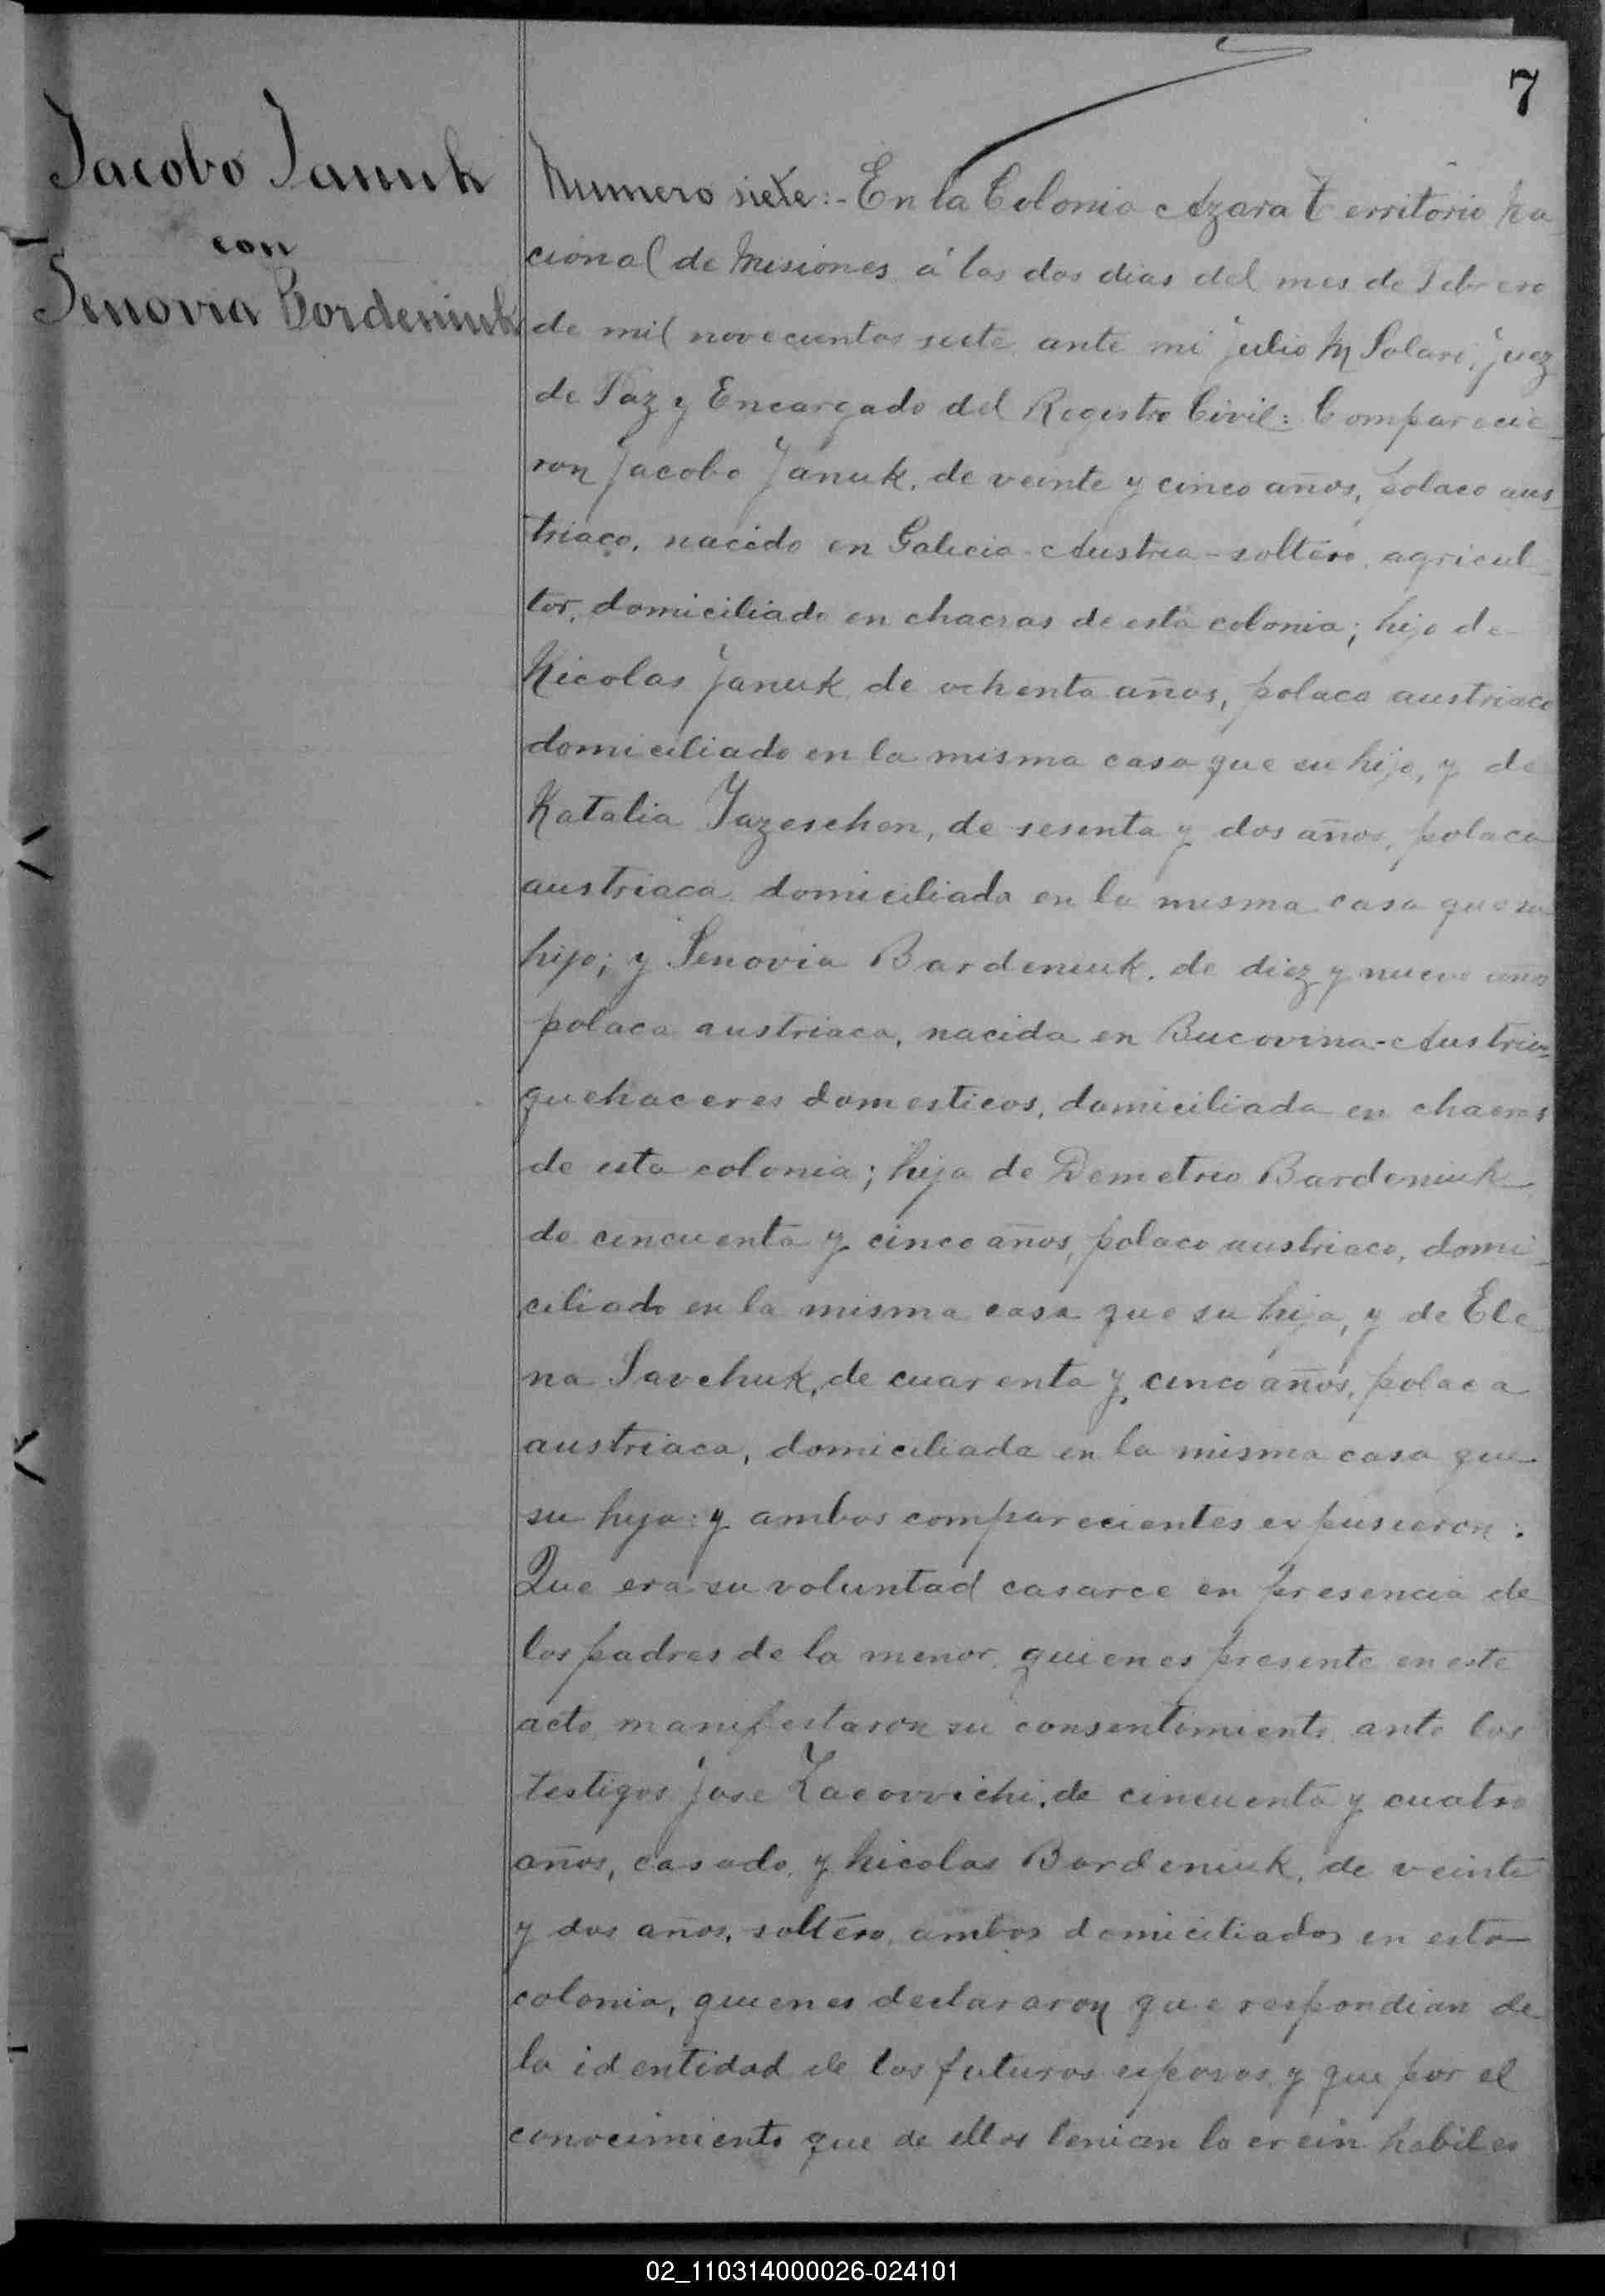 7
Jacobo Januk
con
Senovia Bordeniuk
Numero siete:- En la Colonia Azara Territorio Na
cional de Misiones á los dos dias del mes de Febrero
de mil novecientos siete ante mi Julio M Solari, Juez
de Paz y Encargado del Registro Civil: Comparecie-
ron Jacobo Januk, de veinte y cinco años, polaco aus-
triaco, nacido en Galicia-Austria-soltero, agricul-
tor, domiciliado en chacras de esta colonia; hijo de
Nicolas Januk de ochenta años, polaco austriaco
domiciliado en la misma casa que su hijo, y de
Natalia Jazeschen, de sesenta y dos años, polaca
austriaca domiciliada en la misma casa que su
hijo; y Senovia Bardeniuk, de diez y nueve años
polaca austriaca, nacida en Bucovina-Austria-
quehaceres domesticos, domiciliada en chacras
de esta colonia; hija de Demetrio Bardeniuk
de cincuenta y cinco años, polaco austriaco, domi-
ciliado en la misma casa que su hija, y de Ele
na Savchuk, de cuarenta y cinco años, polaca
austriaca, domiciliada en la misma casa que
su hija: y ambos comparecientes expusieron:
Que era su voluntad casarce en presencia de
los padres de la menor, quienes presente en este
acto, manifestaron su consentimiento ante los
testigos Jose Zacovvichi, de cincuenta y cuatro
años, casado, y Nicolas Bordeniuk, de veinte
y dos años, soltero, ambos domiciliados en esta
colonia, quienes declararon que respondian de
la identidad de los futuros esposos y que por el
conocimiento que de ellos tenian lo creian habiles
02_110314000026-024101